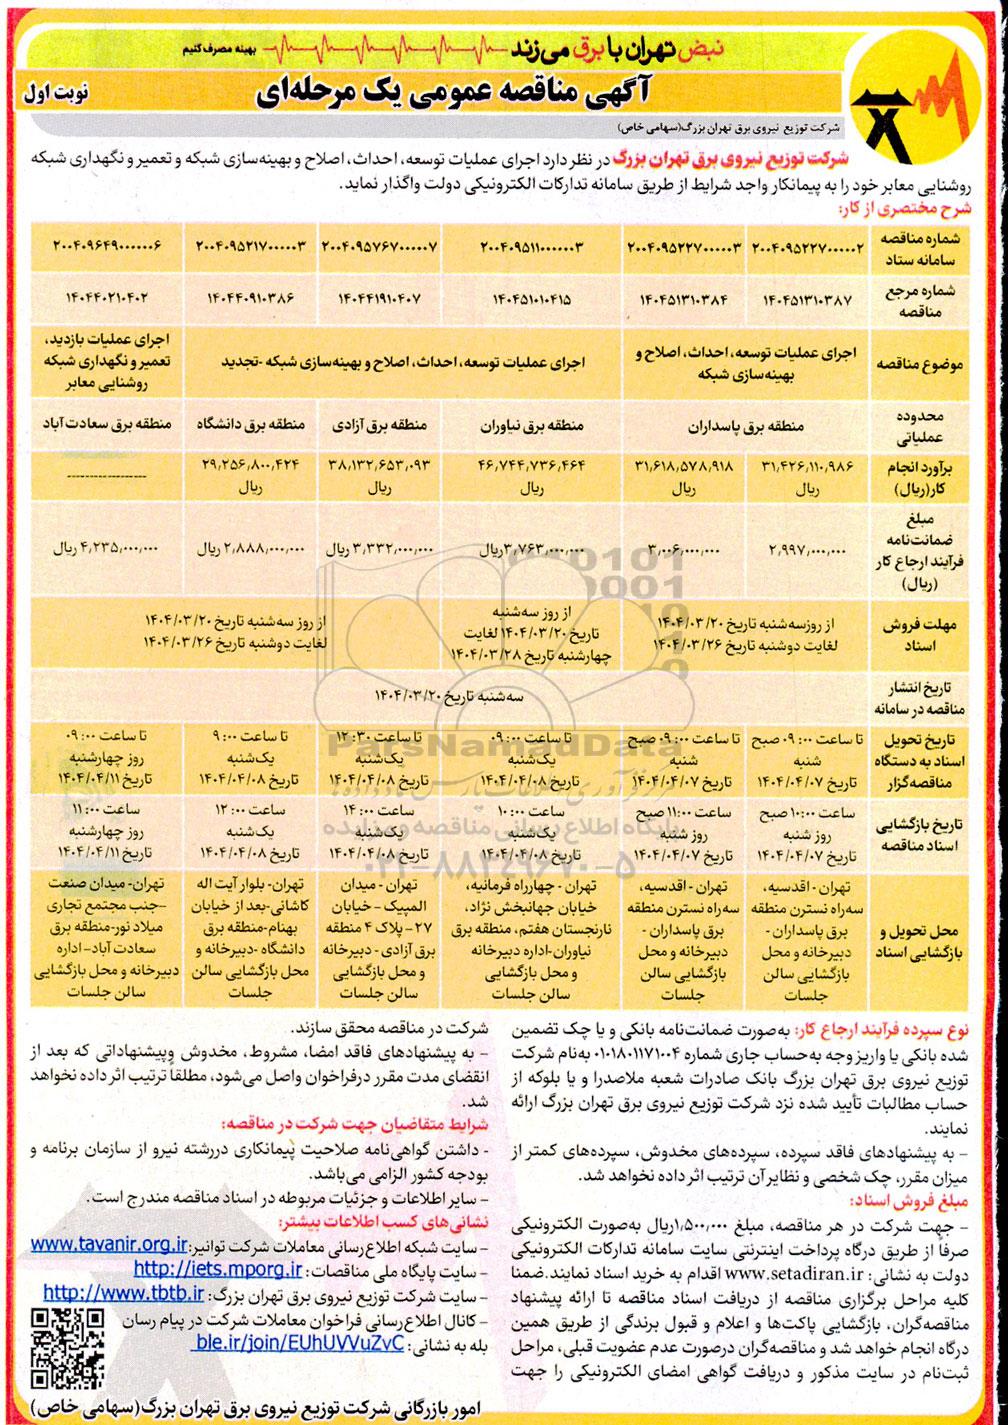 نبض تهران با برق می‌زند
بهینه مصرف کنیم
آگهی مناقصه عمومی یک مرحله‌ای
نوبت اول
شرکت توزیع نیروی برق تهران بزرگ(سهامی خاص)
شرکت توزیع نیروی برق تهران بزرگ در نظر دارد اجرای عملیات توسعه، احداث، اصلاح و بهینه‌سازی شبکه و تعمیر و نگهداری شبکه
روشنایی معابر خود را به پیمانکار واجد شرایط از طریق سامانه تدارکات الکترونیکی دولت واگذار نماید.
شرح مختصری از کار:
شماره مناقصه سامانه ستاد | ۲۰۰۴۰۹۵۲۲۷۰۰۰۰۰۲ | ۲۰۰۴۰۹۵۲۲۷۰۰۰۰۰۳ | ۲۰۰۴۰۹۵۱۱۰۰۰۰۰۳ | ۲۰۰۴۰۹۵۷۶۷۰۰۰۰۰۷ | ۲۰۰۴۰۹۵۲۱۷۰۰۰۰۰۳ | ۲۰۰۴۰۹۶۴۹۰۰۰۰۰۶
شماره مرجع مناقصه | ۱۴۰۴۵۱۳۱۰۳۸۷ | ۱۴۰۴۵۱۳۱۰۳۸۴ | ۱۴۰۴۵۱۰۱۰۴۱۵ | ۱۴۰۴۴۱۹۱۰۴۰۷ | ۱۴۰۴۴۰۹۱۰۳۸۶ | ۱۴۰۴۴۰۲۱۰۴۰۲
موضوع مناقصه | اجرای عملیات توسعه، احداث، اصلاح و بهینه‌سازی شبکه | اجرای عملیات توسعه، احداث، اصلاح و بهینه‌سازی شبکه -تجدید | اجرای عملیات بازدید، تعمیر و نگهداری شبکه روشنایی معابر
محدوده عملیاتی | منطقه برق پاسداران | منطقه برق نیاوران | منطقه برق آزادی | منطقه برق دانشگاه | منطقه برق سعادت‌آباد
برآورد انجام کار(ریال) | ۳۱,۴۲۶,۱۱۰,۹۸۶ ریال | ۳۱,۶۱۸,۵۷۸,۹۱۸ ریال | ۴۶,۷۴۴,۷۳۶,۴۶۴ ریال | ۳۸,۱۳۲,۶۵۳,۰۹۳ ریال | ۲۹,۲۵۶,۸۰۰,۴۲۴ ریال | -----------------
مبلغ ضمانت‌نامه فرآیند ارجاع کار (ریال) | ۲,۹۹۷,۰۰۰,۰۰۰ | ۳,۰۰۶,۰۰۰,۰۰۰ | ۳,۷۶۳,۰۰۰,۰۰۰ریال | ۳,۳۳۲,۰۰۰,۰۰۰ ریال | ۲,۸۸۸,۰۰۰,۰۰۰ ریال | ۴,۲۳۵,۰۰۰,۰۰۰ ریال
مهلت فروش اسناد | از روزسه‌شنبه تاریخ ۱۴۰۴/۰۳/۲۰ لغایت دوشنبه تاریخ ۱۴۰۴/۰۳/۲۶ | از روز سه‌شنبه تاریخ ۱۴۰۴/۰۳/۲۰ لغایت چهارشنبه تاریخ ۱۴۰۴/۰۳/۲۸ | از روز سه‌شنبه تاریخ ۱۴۰۴/۰۳/۲۰ لغایت دوشنبه تاریخ ۱۴۰۴/۰۳/۲۶
تاریخ انتشار مناقصه در سامانه | سه‌شنبه تاریخ ۱۴۰۴/۰۳/۲۰
تاریخ تحویل اسناد به دستگاه مناقصه‌گزار | تا ساعت ۰۹:۰۰ صبح شنبه تاریخ ۱۴۰۴/۰۴/۰۷ | تا ساعت ۰۹:۰۰ صبح شنبه تاریخ ۱۴۰۴/۰۴/۰۷ | تا ساعت ۰۹:۰۰ یک‌شنبه تاریخ ۱۴۰۴/۰۴/۰۸ | تا ساعت ۱۲:۳۰ یک‌شنبه تاریخ ۱۴۰۴/۰۴/۰۸ | تا ساعت ۹:۰۰ یک‌شنبه تاریخ ۱۴۰۴/۰۴/۰۸ | تا ساعت ۰۹:۰۰ روز چهارشنبه تاریخ ۱۴۰۴/۰۴/۱۱
تاریخ بازگشایی اسناد مناقصه | ساعت ۱۰:۰۰ صبح روز شنبه تاریخ ۱۴۰۴/۰۴/۰۷ | ساعت ۱۱:۰۰ صبح روز شنبه تاریخ ۱۴۰۴/۰۴/۰۷ | ساعت ۱۰:۰۰ یک‌شنبه تاریخ ۱۴۰۴/۰۴/۰۸ | ساعت ۱۴:۰۰ یک‌شنبه تاریخ ۱۴۰۴/۰۴/۰۸ | ساعت ۱۲:۰۰ یک‌شنبه تاریخ ۱۴۰۴/۰۴/۰۸ | ساعت ۱۱:۰۰ روز چهارشنبه تاریخ ۱۴۰۴/۰۴/۱۱
محل تحویل و بازگشایی اسناد | تهران - اقدسیه، سه‌راه نسترن منطقه برق پاسداران - دبیرخانه و محل بازگشایی سالن جلسات | تهران - اقدسیه، سه‌راه نسترن منطقه برق پاسداران - دبیرخانه و محل بازگشایی سالن جلسات | تهران - چهارراه فرمانیه، خیابان جهانبخش نژاد، نارنجستان هفتم، منطقه برق نیاوران-اداره دبیرخانه و محل بازگشایی سالن جلسات | تهران - میدان المپیک - خیابان ۲۷- پلاک ۴ منطقه برق آزادی - دبیرخانه و محل بازگشایی سالن جلسات | تهران- بلوار آیت اله کاشانی-بعد از خیابان بهنام-منطقه برق دانشگاه -دبیرخانه و محل بازگشایی سالن جلسات | تهران- میدان صنعت -جنب مجتمع تجاری میلاد نور-منطقه برق سعادت آباد- اداره دبیرخانه و محل بازگشایی سالن جلسات
ParsNamadData
۰۲۱-۸۸۳۴۹۶۷۰-۵
نوع سپرده فرآیند ارجاع کار: به‌صورت ضمانت‌نامه بانکی و یا چک تضمین
شده بانکی یا واریز وجه به‌حساب جاری شماره ۰۱۰۱۸۰۱۱۷۱۰۰۴ به‌نام شرکت
توزیع نیروی برق تهران بزرگ بانک صادرات شعبه ملاصدرا و یا بلوکه از
حساب مطالبات تأیید شده نزد شرکت توزیع نیروی برق تهران بزرگ ارائه
نمایند.
- به پیشنهادهای فاقد سپرده، سپرده‌های مخدوش، سپرده‌های کمتر از
میزان مقرر، چک شخصی و نظایر آن ترتیب اثر داده نخواهد شد.
مبلغ فروش اسناد:
- جهت شرکت در هر مناقصه، مبلغ ۱,۵۰۰,۰۰۰ریال به‌صورت الکترونیکی
صرفاً از طریق درگاه پرداخت اینترنتی سایت سامانه تدارکات الکترونیکی
دولت به نشانی: www.setadiran.ir اقدام به خرید اسناد نمایند.ضمنا
کلیه مراحل برگزاری مناقصه از دریافت اسناد مناقصه تا ارائه پیشنهاد
مناقصه‌گران، بازگشایی پاکت‌ها و اعلام و قبول برندگی از طریق همین
درگاه انجام خواهد شد و مناقصه‌گران درصورت عدم عضویت قبلی، مراحل
ثبت‌نام در سایت مذکور و دریافت گواهی امضای الکترونیکی را جهت
شرکت در مناقصه محقق سازند.
- به پیشنهادهای فاقد امضا، مشروط، مخدوش وپیشنهاداتی که بعد از
انقضای مدت مقرر درفراخوان واصل می‌شود، مطلقاً ترتیب اثر داده نخواهد
شد.
شرایط متقاضیان جهت شرکت در مناقصه:
- داشتن گواهی‌نامه صلاحیت پیمانکاری دررشته نیرو از سازمان برنامه و
بودجه کشور الزامی می‌باشد.
- سایر اطلاعات و جزئیات مربوطه در اسناد مناقصه مندرج است.
نشانی‌های کسب اطلاعات بیشتر:
- سایت شبکه اطلاع‌رسانی معاملات شرکت توانیر: www.tavanir.org.ir
- سایت پایگاه ملی مناقصات: http://iets.mporg.ir
- سایت شرکت توزیع نیروی برق تهران بزرگ: http://www.tbtb.ir
- کانال اطلاع‌رسانی فراخوان معاملات شرکت در پیام رسان
بله به نشانی: ble.ir/join/EUhUVVuZvC
امور بازرگانی شرکت توزیع نیروی برق تهران بزرگ(سهامی خاص)